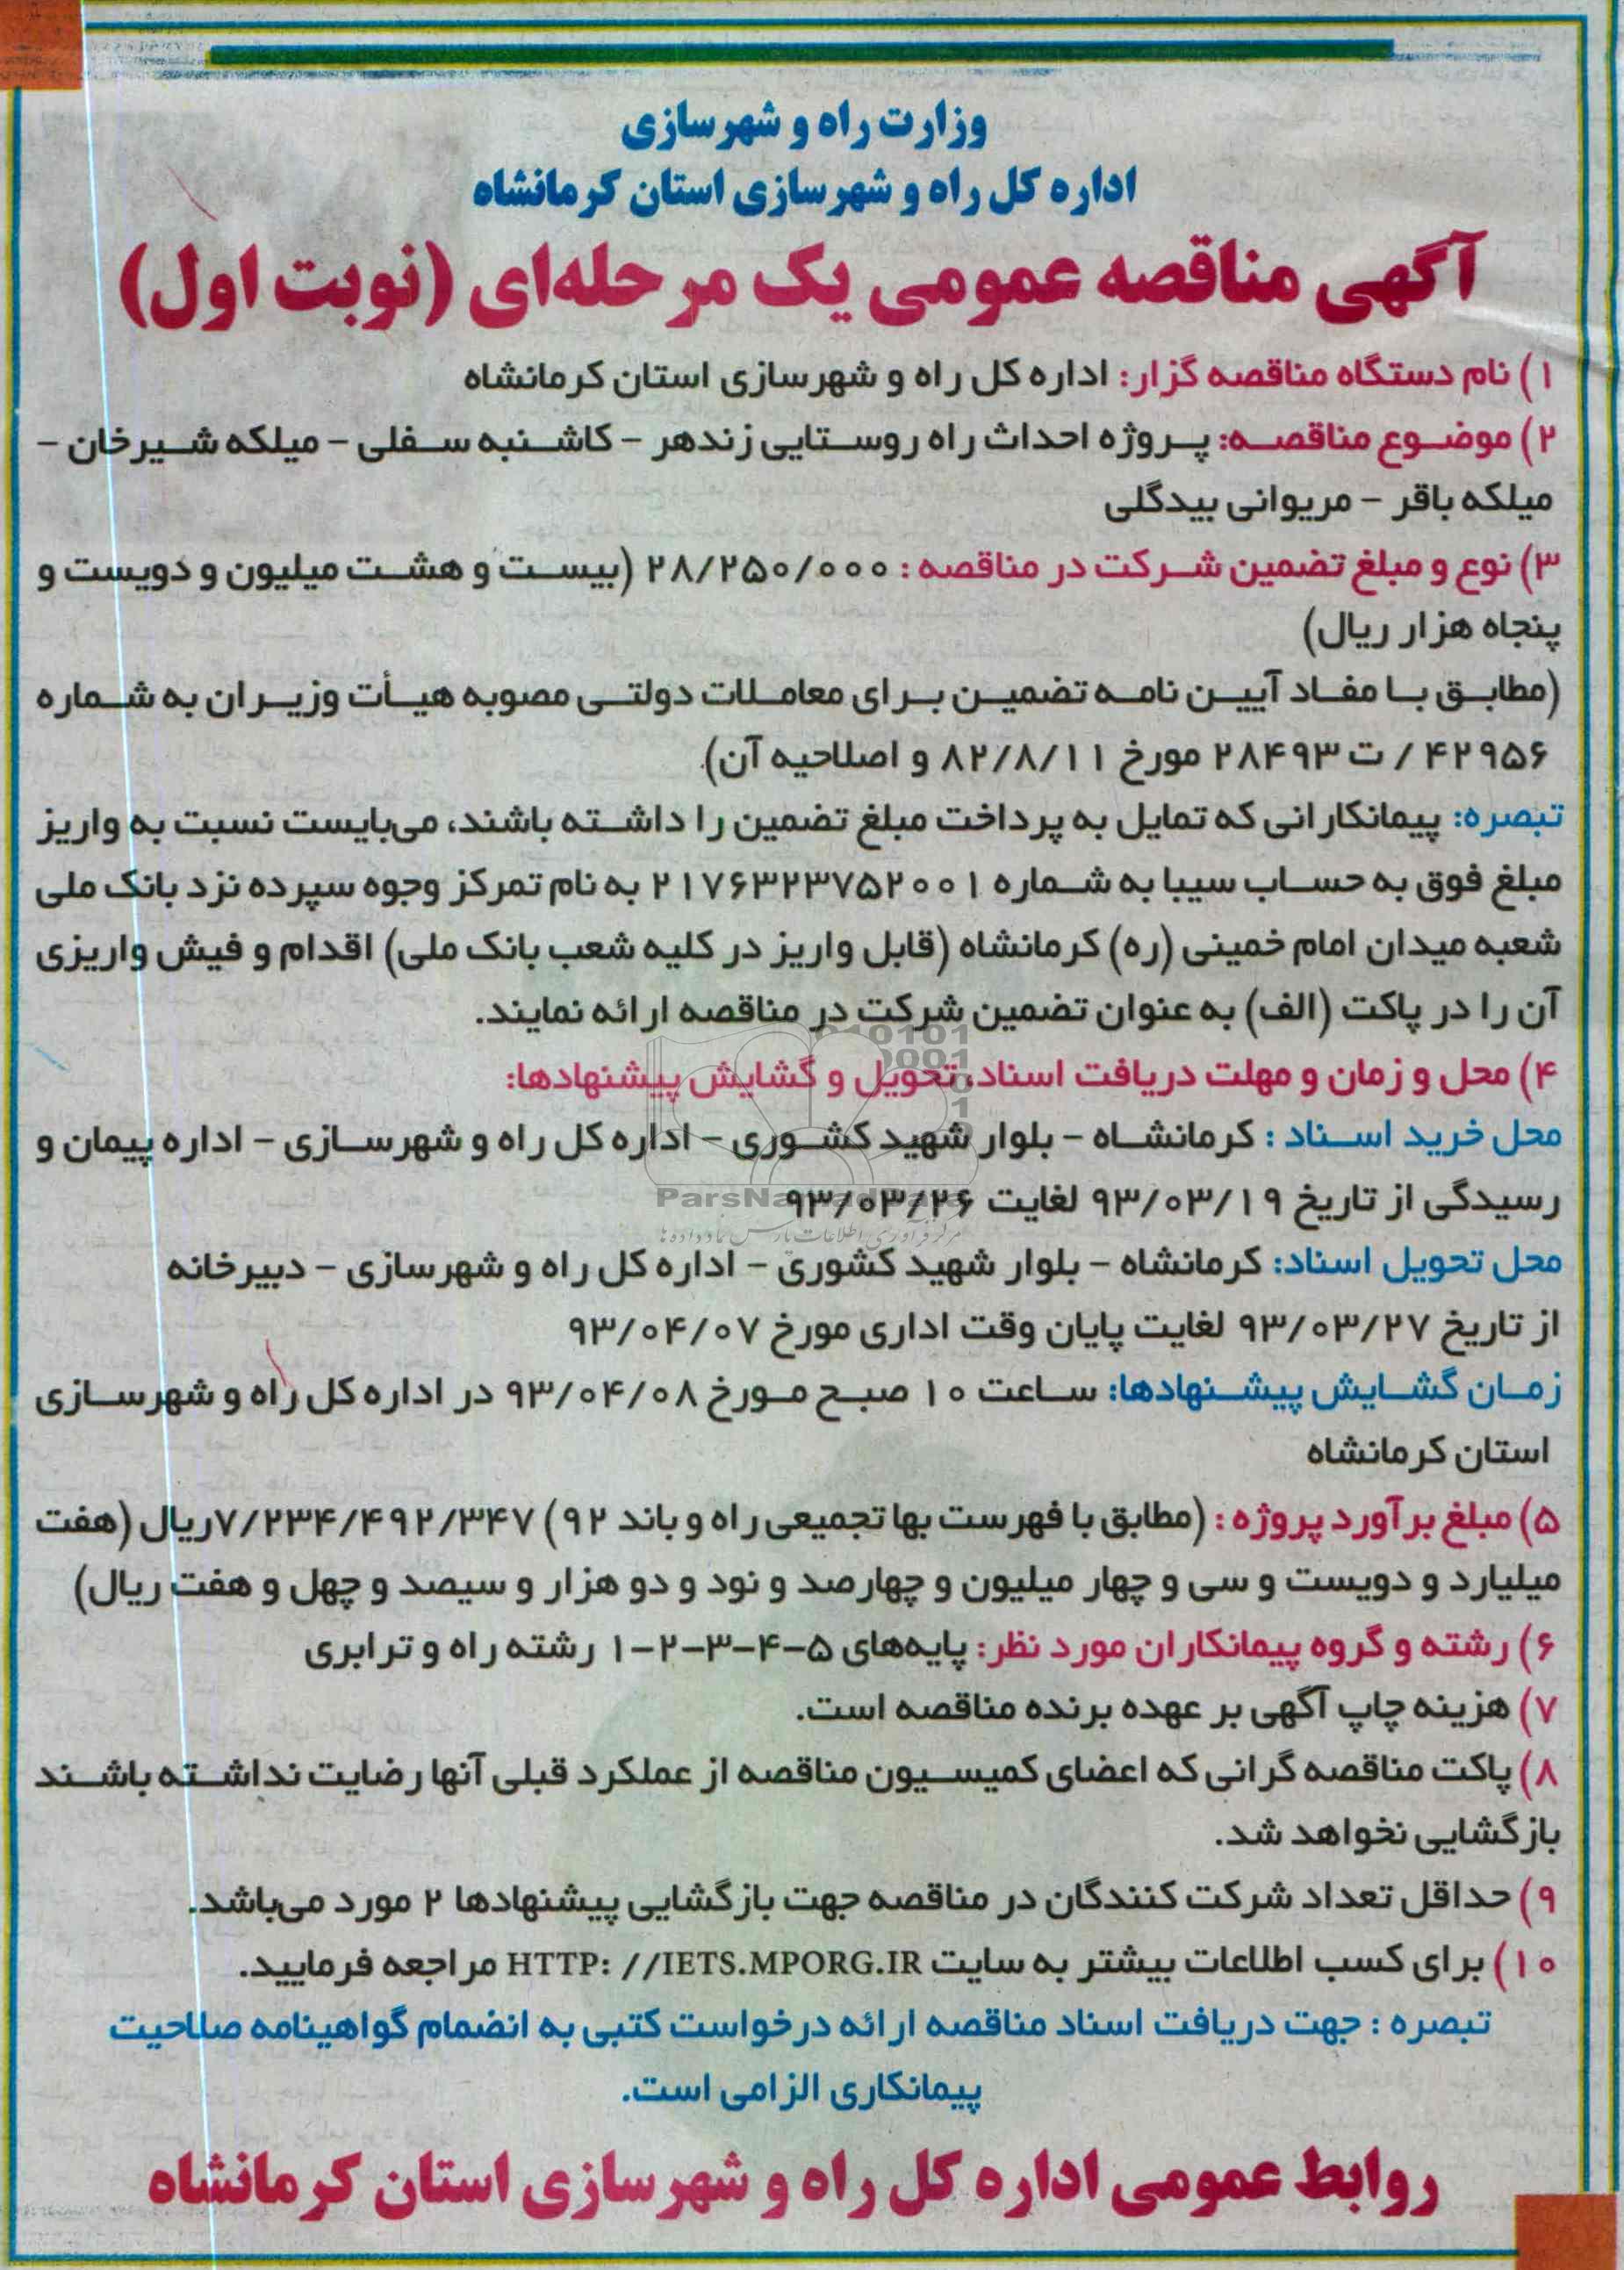 وزارت راه و شهرسازی
اداره کل راه و شهرسازی استان کرمانشاه
آگهی مناقصه عمومی یک مرحله‌ای (نوبت اول)
۱) نام دستگاه مناقصه گزار: اداره کل راه و شهرسازی استان کرمانشاه
۲) موضوع مناقصه: پروژه احداث راه روستایی زندهر – کاشنبه سفلی – میلکه شیرخان –
میلکه باقر – مریوانی بیدگلی
۳) نوع و مبلغ تضمین شرکت در مناقصه : ۲۸/۲۵۰/۰۰۰ (بیست و هشت میلیون و دویست و
پنجاه هزار ریال)
(مطابق با مفاد آیین نامه تضمین برای معاملات دولتی مصوبه هیأت وزیران به شماره
۴۲۹۵۶ / ت ۲۸۴۹۳ مورخ ۸۲/۸/۱۱ و اصلاحیه آن).
تبصره: پیمانکارانی که تمایل به پرداخت مبلغ تضمین را داشته باشند، می‌بایست نسبت به واریز
مبلغ فوق به حساب سیبا به شماره ۲۱۷۶۳۲۳۷۵۲۰۰۱ به نام تمرکز وجوه سپرده نزد بانک ملی
شعبه میدان امام خمینی (ره) کرمانشاه (قابل واریز در کلیه شعب بانک ملی) اقدام و فیش واریزی
آن را در پاکت (الف) به عنوان تضمین شرکت در مناقصه ارائه نمایند.
۴) محل و زمان و مهلت دریافت اسناد، تحویل و گشایش پیشنهادها:
محل خرید اسناد : کرمانشاه – بلوار شهید کشوری – اداره کل راه و شهرسازی – اداره پیمان و
رسیدگی از تاریخ ۹۳/۰۳/۱۹ لغایت ۹۳/۰۳/۲۶
ParsNamadData
مرکز فرآوری اطلاعات پارس نماد داده ها
محل تحویل اسناد: کرمانشاه – بلوار شهید کشوری – اداره کل راه و شهرسازی – دبیرخانه
از تاریخ ۹۳/۰۳/۲۷ لغایت پایان وقت اداری مورخ ۹۳/۰۴/۰۷
زمان گشایش پیشنهادها: ساعت ۱۰ صبح مورخ ۹۳/۰۴/۰۸ در اداره کل راه و شهرسازی
استان کرمانشاه
۵) مبلغ برآورد پروژه : (مطابق با فهرست بها تجمیعی راه و باند ۹۲) ۷/۲۳۴/۴۹۲/۳۴۷ریال (هفت
میلیارد و دویست و سی و چهار میلیون و چهارصد و نود و دو هزار و سیصد و چهل و هفت ریال)
۶) رشته و گروه پیمانکاران مورد نظر: پایه‌های ۵-۴-۳-۲-۱ رشته راه و ترابری
۷) هزینه چاپ آگهی بر عهده برنده مناقصه است.
۸) پاکت مناقصه گرانی که اعضای کمیسیون مناقصه از عملکرد قبلی آنها رضایت نداشته باشند
بازگشایی نخواهد شد.
۹) حداقل تعداد شرکت کنندگان در مناقصه جهت بازگشایی پیشنهادها ۲ مورد می‌باشد.
۱۰) برای کسب اطلاعات بیشتر به سایت HTTP: //IETS.MPORG.IR مراجعه فرمایید.
تبصره : جهت دریافت اسناد مناقصه ارائه درخواست کتبی به انضمام گواهینامه صلاحیت
پیمانکاری الزامی است.
روابط عمومی اداره کل راه و شهرسازی استان کرمانشاه